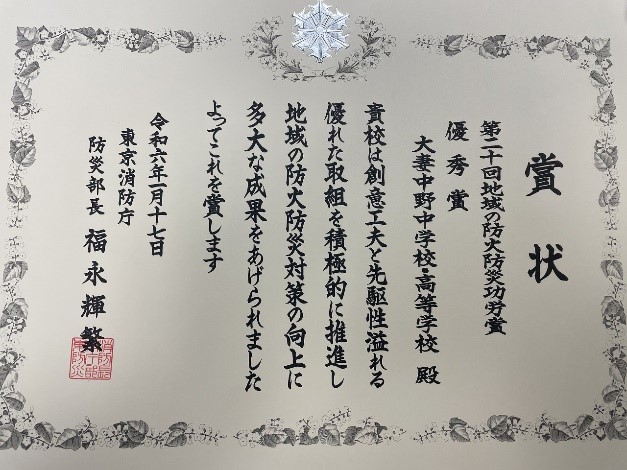 賞状
第二十回地域の防火防災功労賞
優秀賞
大妻中野中学校・高等学校 殿
貴校は創意工夫と先駆性溢れる
優れた取組を積極的に推進し
地域の防火防災対策の向上に
多大な成果をあげられました
よってこれを賞します
令和六年一月十七日
東京消防庁
防災部長 福永輝繁